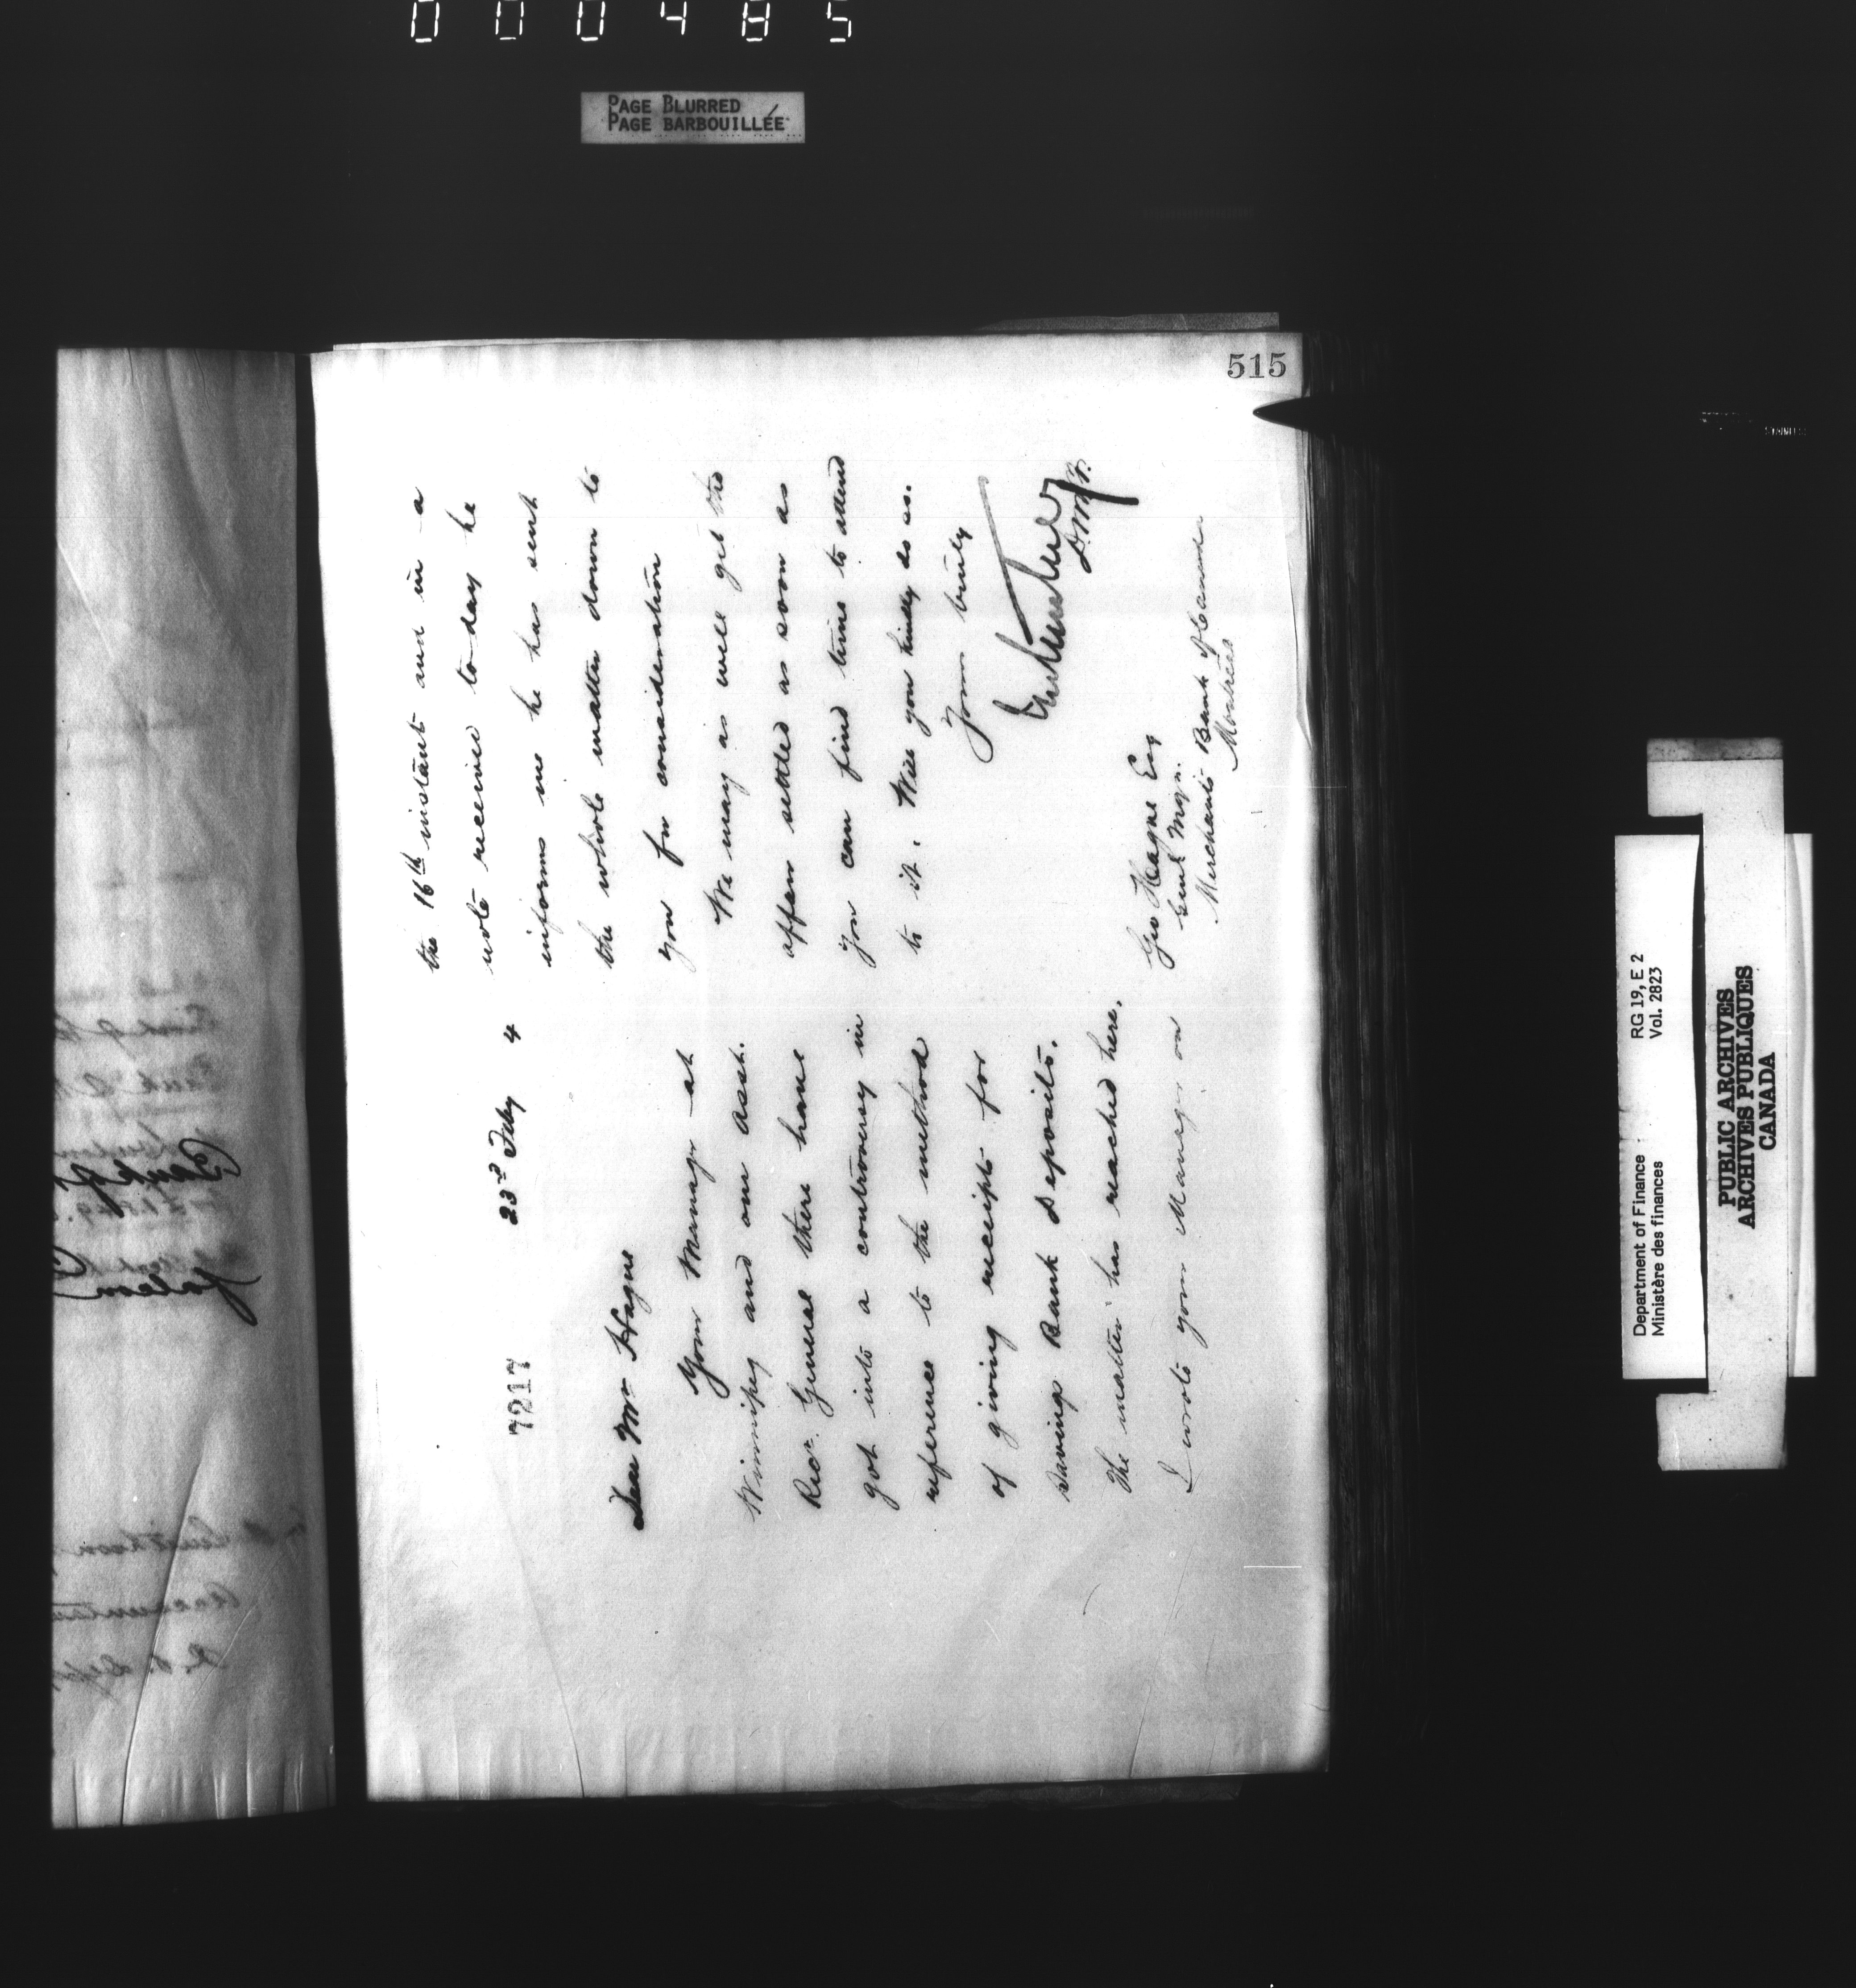 000485
PAGE BLURRED
PAGE BARBOUILLÉE
515
7217 23rd Feby 4
Dear Mr Hague
Your Manager at
Winnipeg and our Asst.
Recr. General there have
got into a controversy in
reference to the method
of giving receipts for
Savings Bank deposits.
The matter has reached here.
I wrote your Manager on
the 16th instant and in a
note received to-day he
informs me he has sent
the whole matter down to
you for consideration
We may as well get the
affair settled as soon as
you can find time to attend
to it. Will you kindly do so.
Yours truly
D.M.F.
Geo Hague Esq
Genl Mgr.
Merchants Bank of Canada
Montreal
Department of Finance RG 19, E 2
Ministère des finances Vol. 2823
PUBLIC ARCHIVES
ARCHIVES PUBLIQUES
CANADA